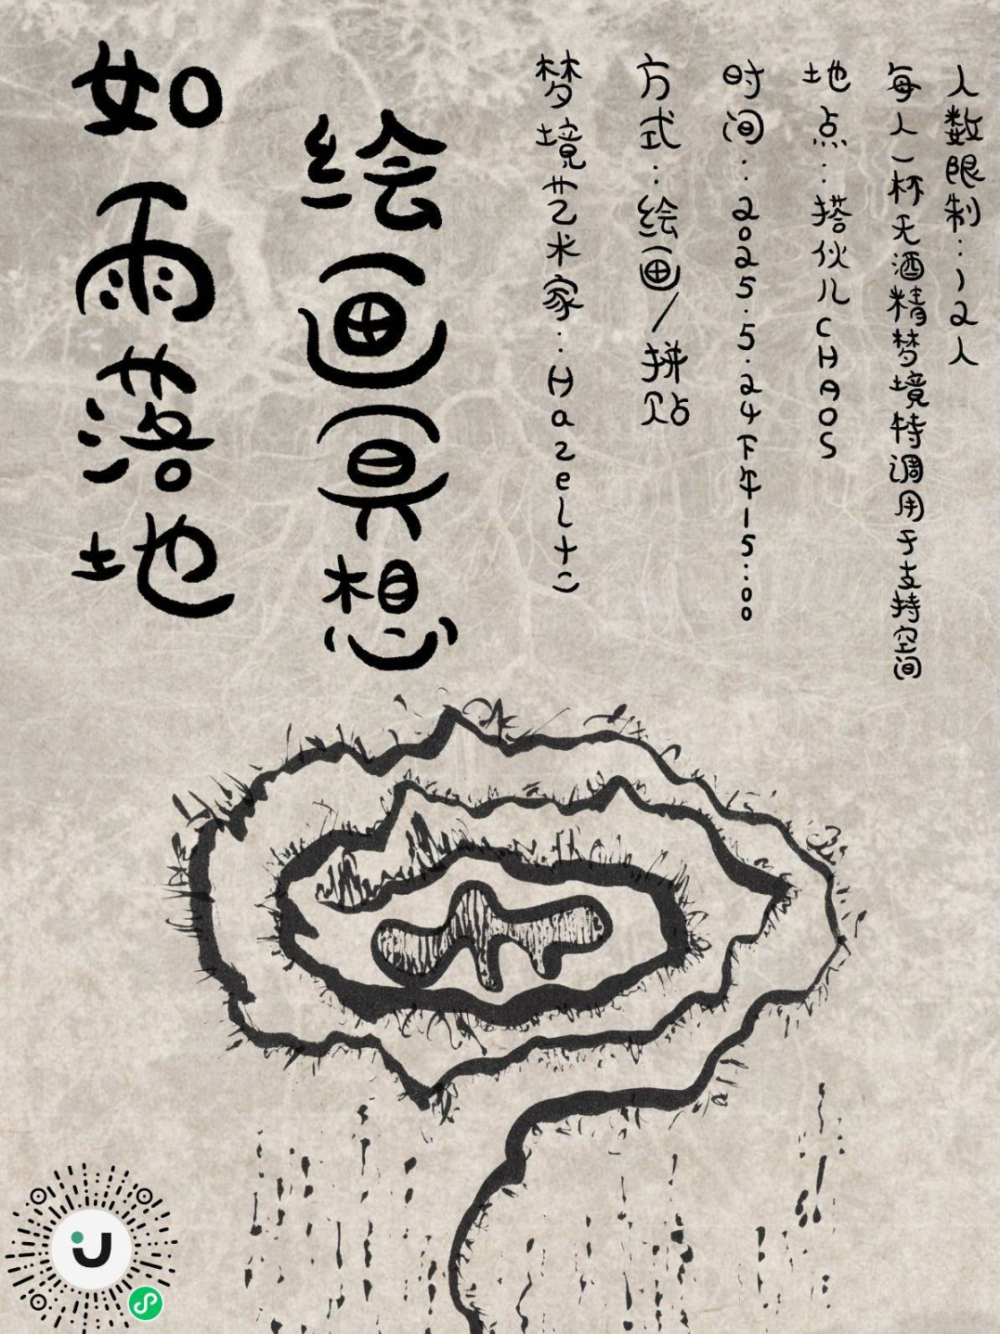 如雨落地
绘画冥想
梦境艺术家：Hazel十二
方式：绘画/拼贴
时间：2025.5.24下午15:00
地点：搭伙儿CHAOS
每人一杯无酒精梦境特调用于支持空间
人数限制：12人